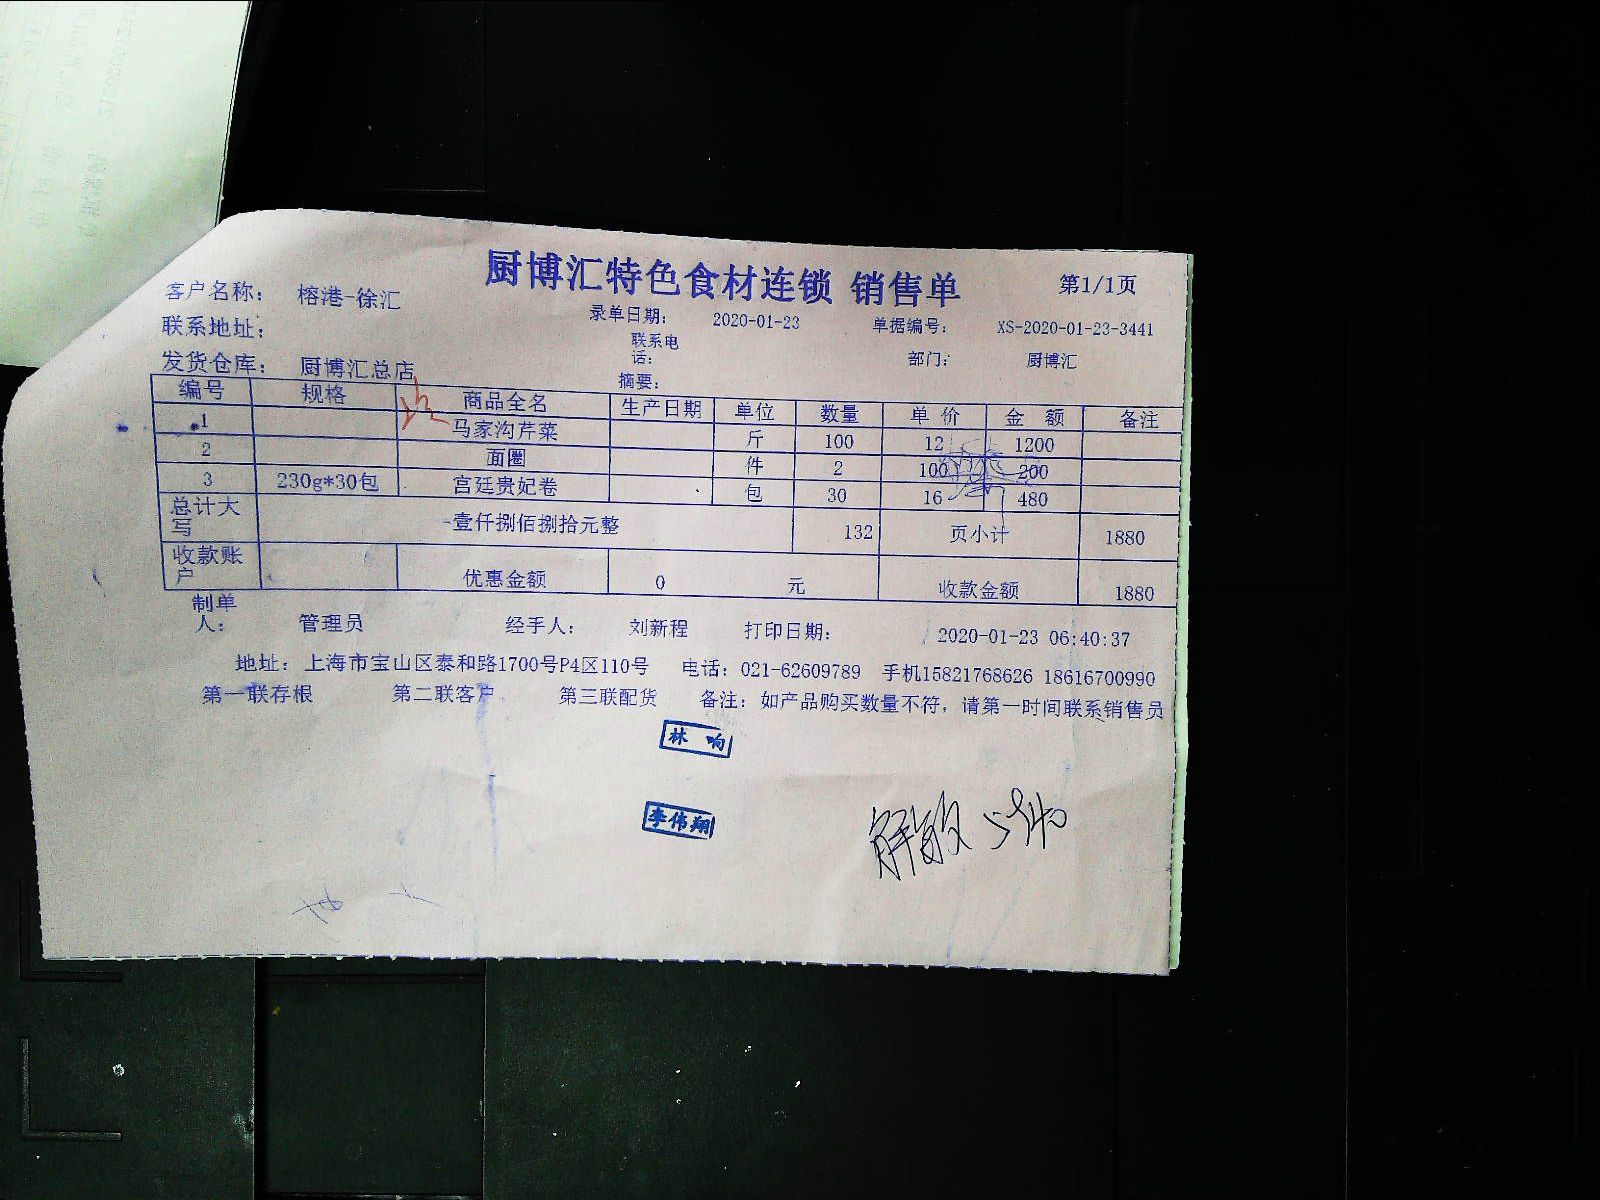 厨博汇特色食材连锁 销售单 第1/1页
客户名称： 榕港-徐汇 录单日期： 2020-01-23 单据编号： XS-2020-01-23-3441
联系地址： 联系电话： 部门： 厨博汇
发货仓库： 厨博汇总店 摘要：
编号 规格 商品全名 生产日期 单位 数量 单价 金额 备注
1 马家沟芹菜 斤 100 12 1200
2 面圈 件 2 100 200
3 230g*30包 宫廷贵妃卷 包 30 16 480
总计大写 壹仟捌佰捌拾元整 132 页小计 1880
收款账户 优惠金额 0 元 收款金额 1880
制单人： 管理员 经手人： 刘新程 打印日期： 2020-01-23 06:40:37
地址：上海市宝山区泰和路1700号P4区110号 电话：021-62609789 手机15821768626 18616700990
第一联存根 第二联客户 第三联配货 备注：如产品购买数量不符，请第一时间联系销售员
林响
李伟翔